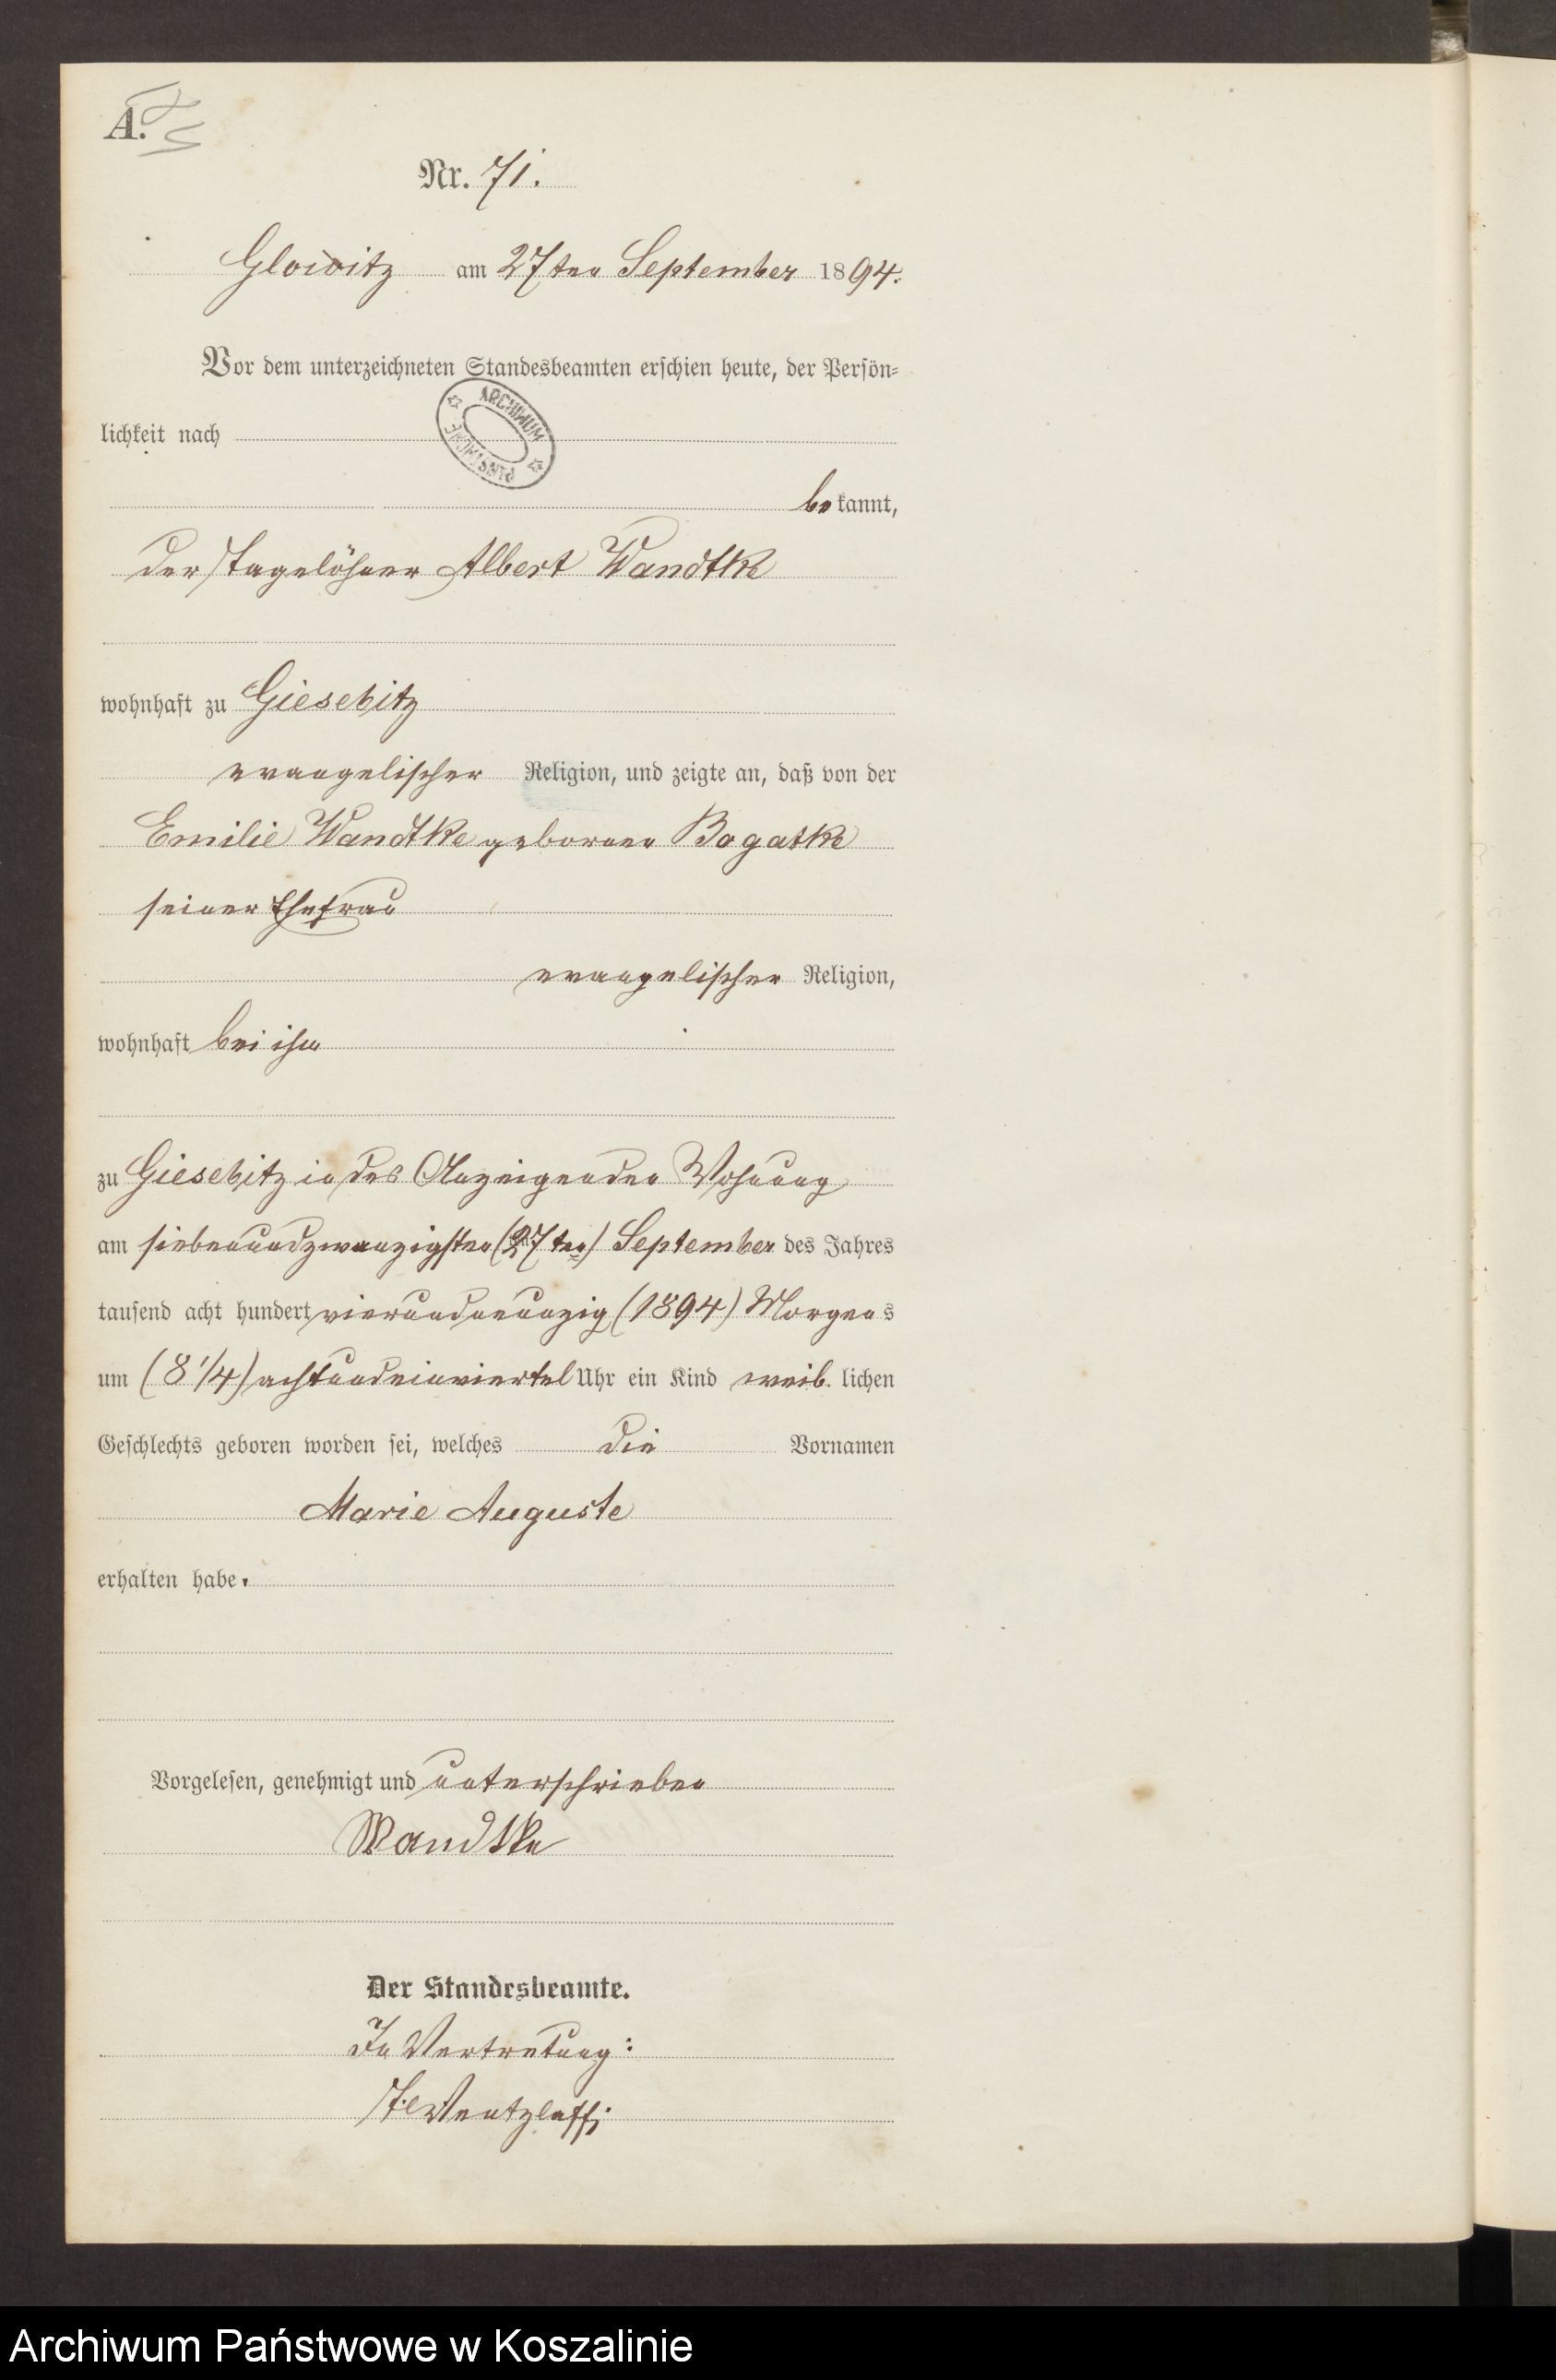 A.
Nr. 71.
Glowitz am 27ten September 1894.
Vor dem unterzeichneten Standesbeamten erschien heute, der Persön-
lichkeit nach
ARCHIWUM PAŃSTWOWE
bekannt,
der Tagelöhner Albert Wandtke
wohnhaft zu Giesebitz
evangelischer Religion, und zeigte an, daß von der
Emilie Wandtke geborenen Bogatke
seiner Ehefrau
evangelischer Religion,
wohnhaft bei ihm
zu Giesebitz in des Anzeigenden Wohnung
am siebenundzwanzigsten (27ten) September des Jahres
tausend acht hundert vierundneunzig (1894) Morgens
um (8 1/4) achtundeinviertel Uhr ein Kind weib. lichen
Geschlechts geboren worden sei, welches die Vornamen
Marie Auguste
erhalten habe.
Vorgelesen, genehmigt und unterschrieben
Wandtke
Der Standesbeamte.
In Vertretung:
Wentzlaff
Archiwum Państwowe w Koszalinie